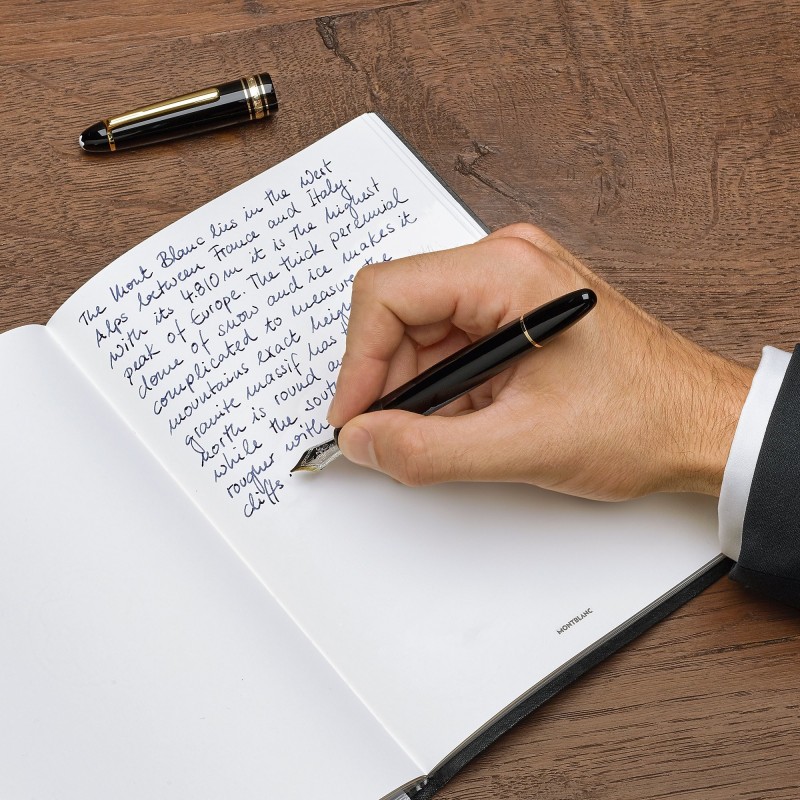 The Mont Blanc lies in the West
Alps between France and Italy.
With its 4.810 m it is the highest
peak of Europe. The thick perennial
dome of snow and ice makes it
complicated to measure the
mountains exact heigh
granite massif has
north is round a
while the sout
rougher with
cliffs.
MONTBLANC